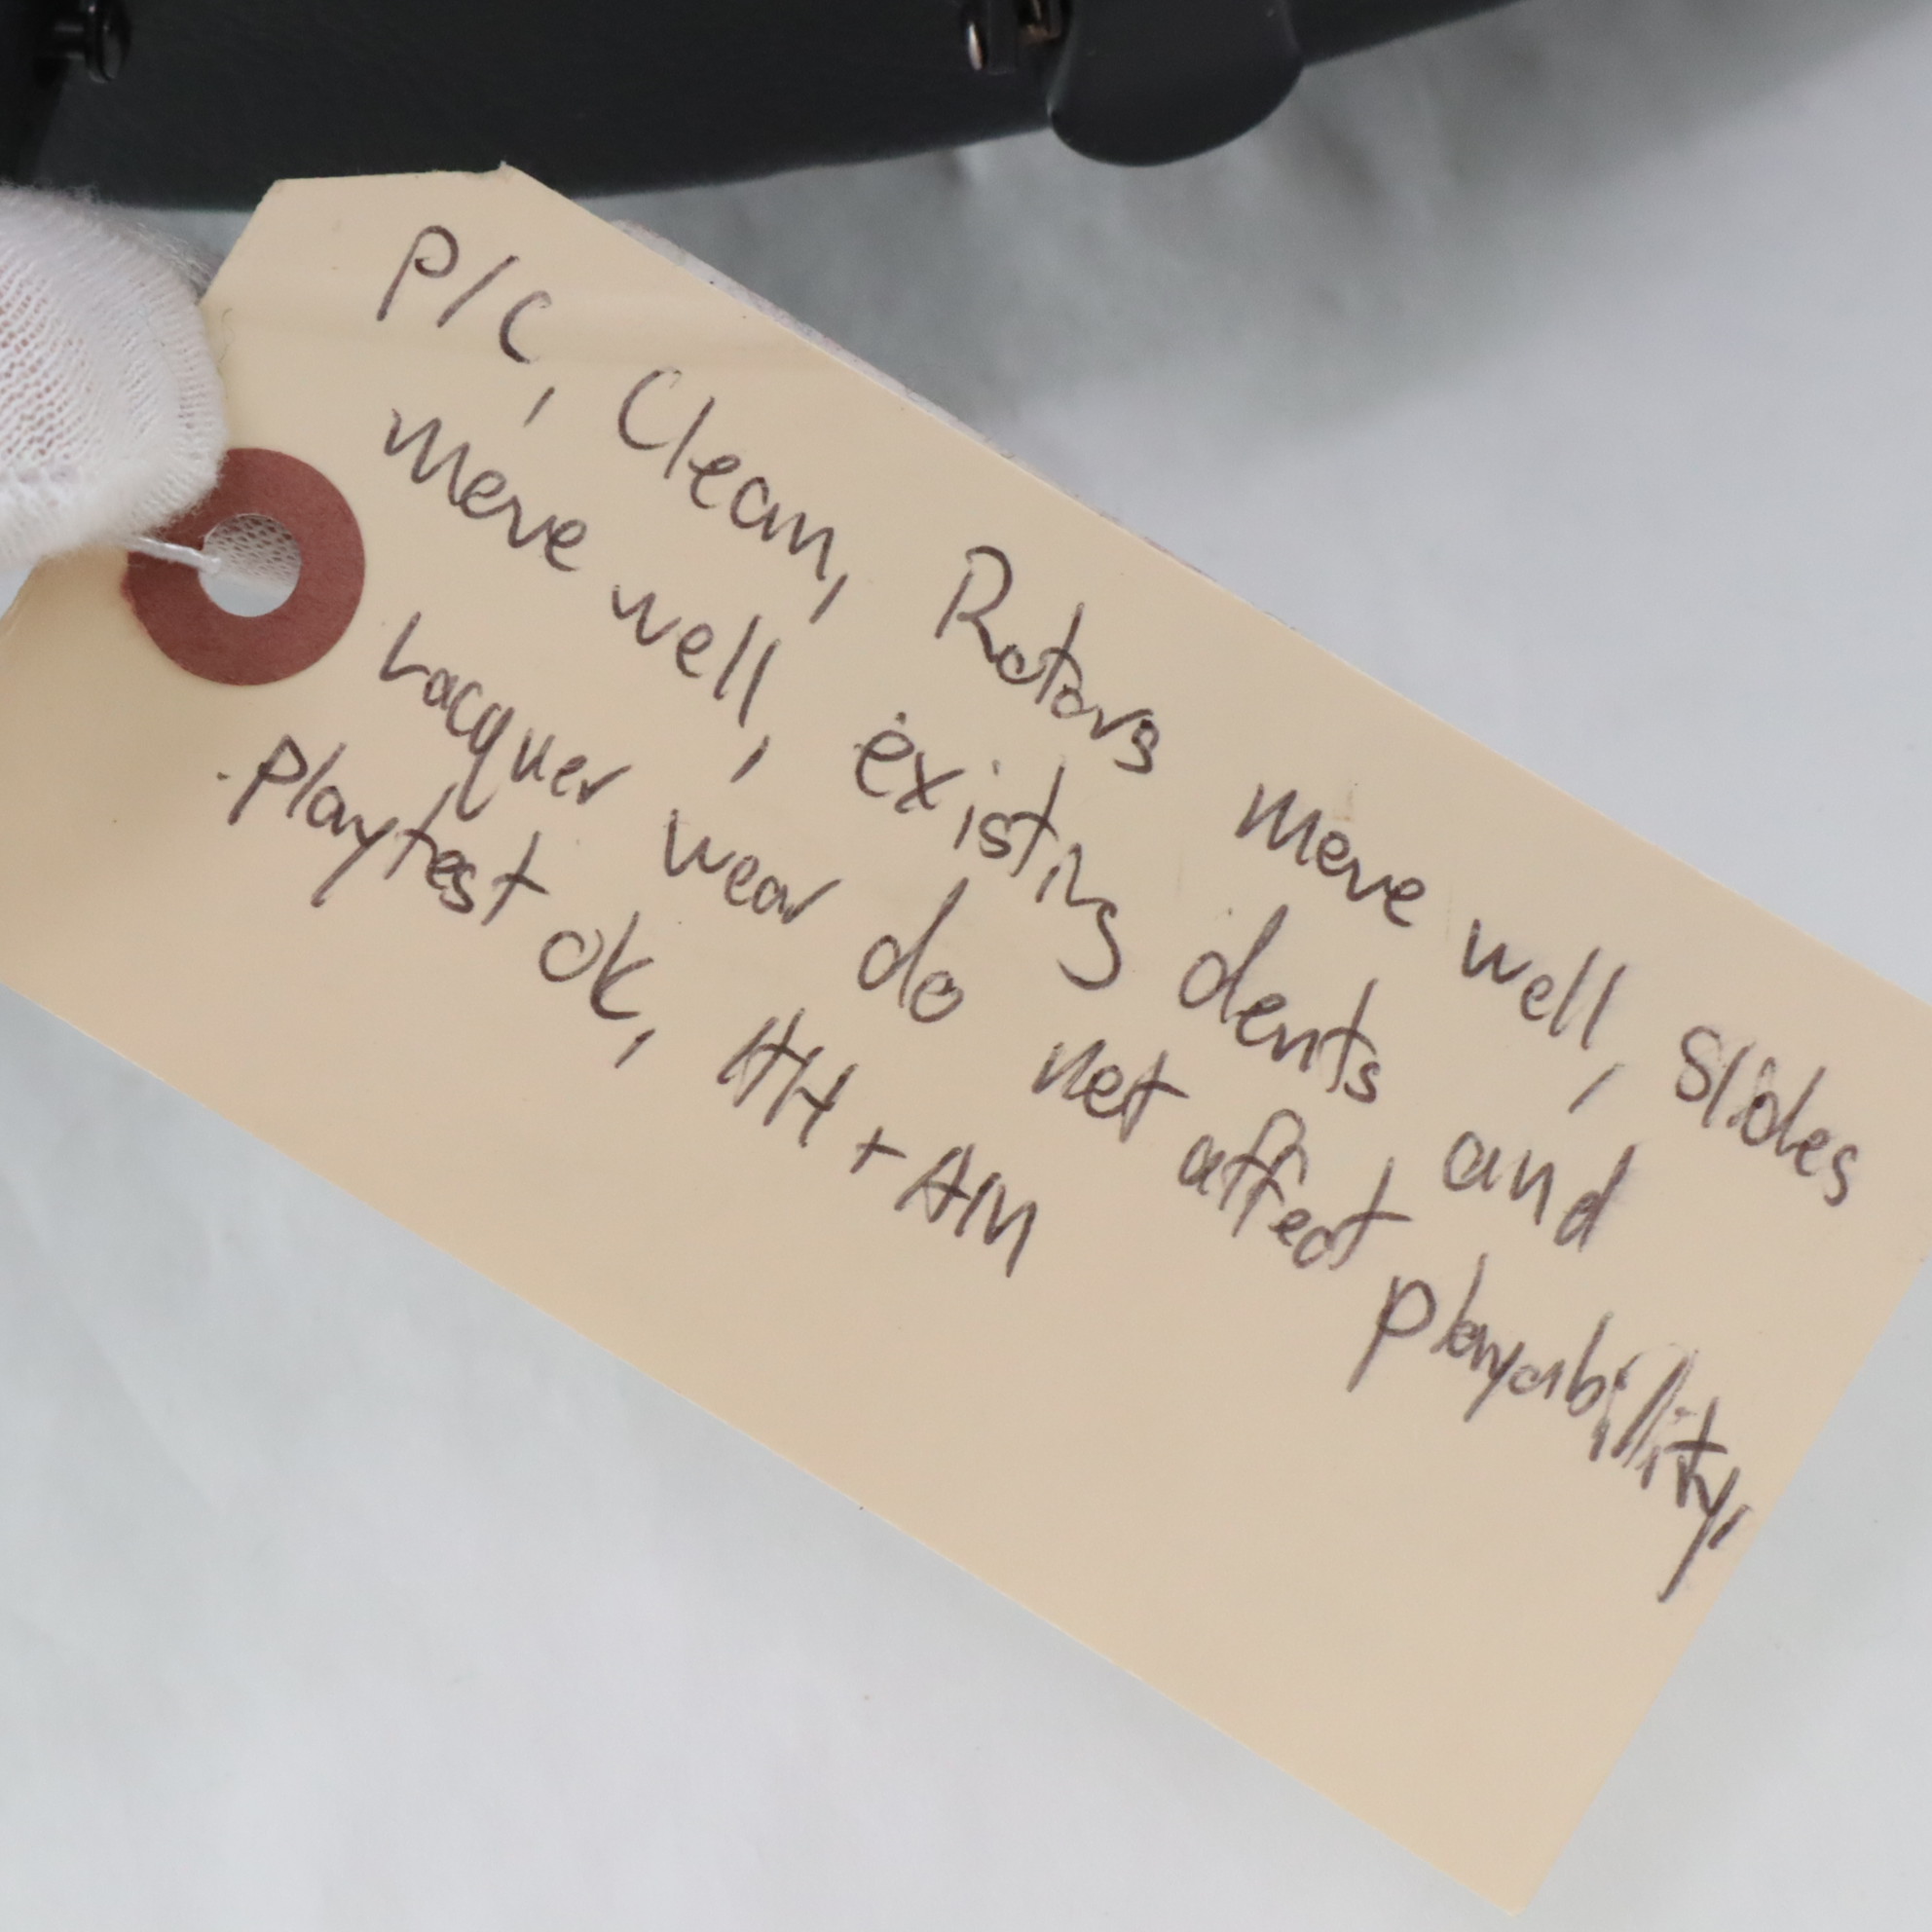 P/C, Clean, Rotors move well, slides
move well, existing dents and
Lacquer wear do not affect playability,
Playtest ok, HH + AM